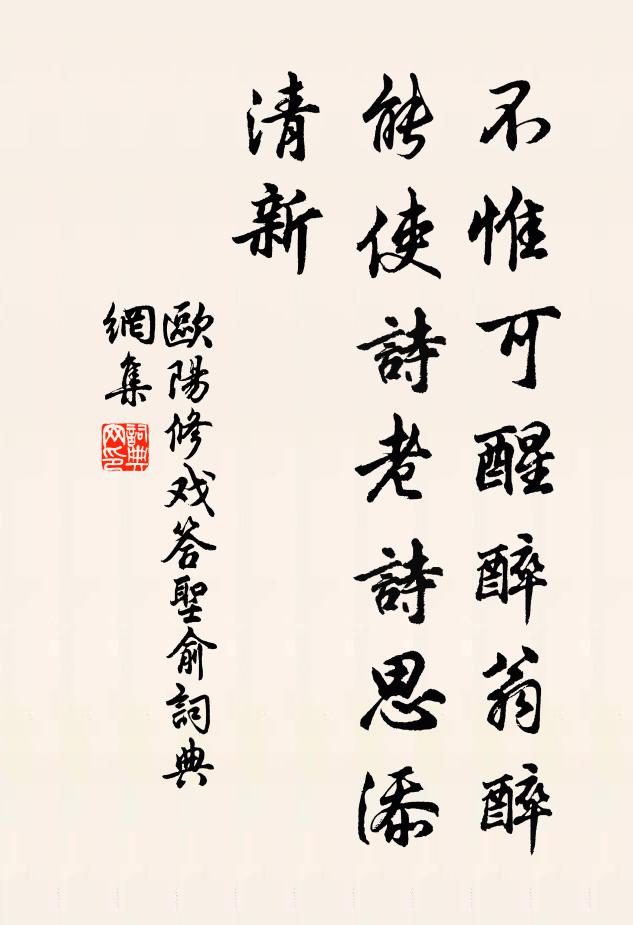 不惟可醒醉翁醉
能使詩老詩思添
清新
歐陽修戏答聖俞詞典
網集
詞典
网印